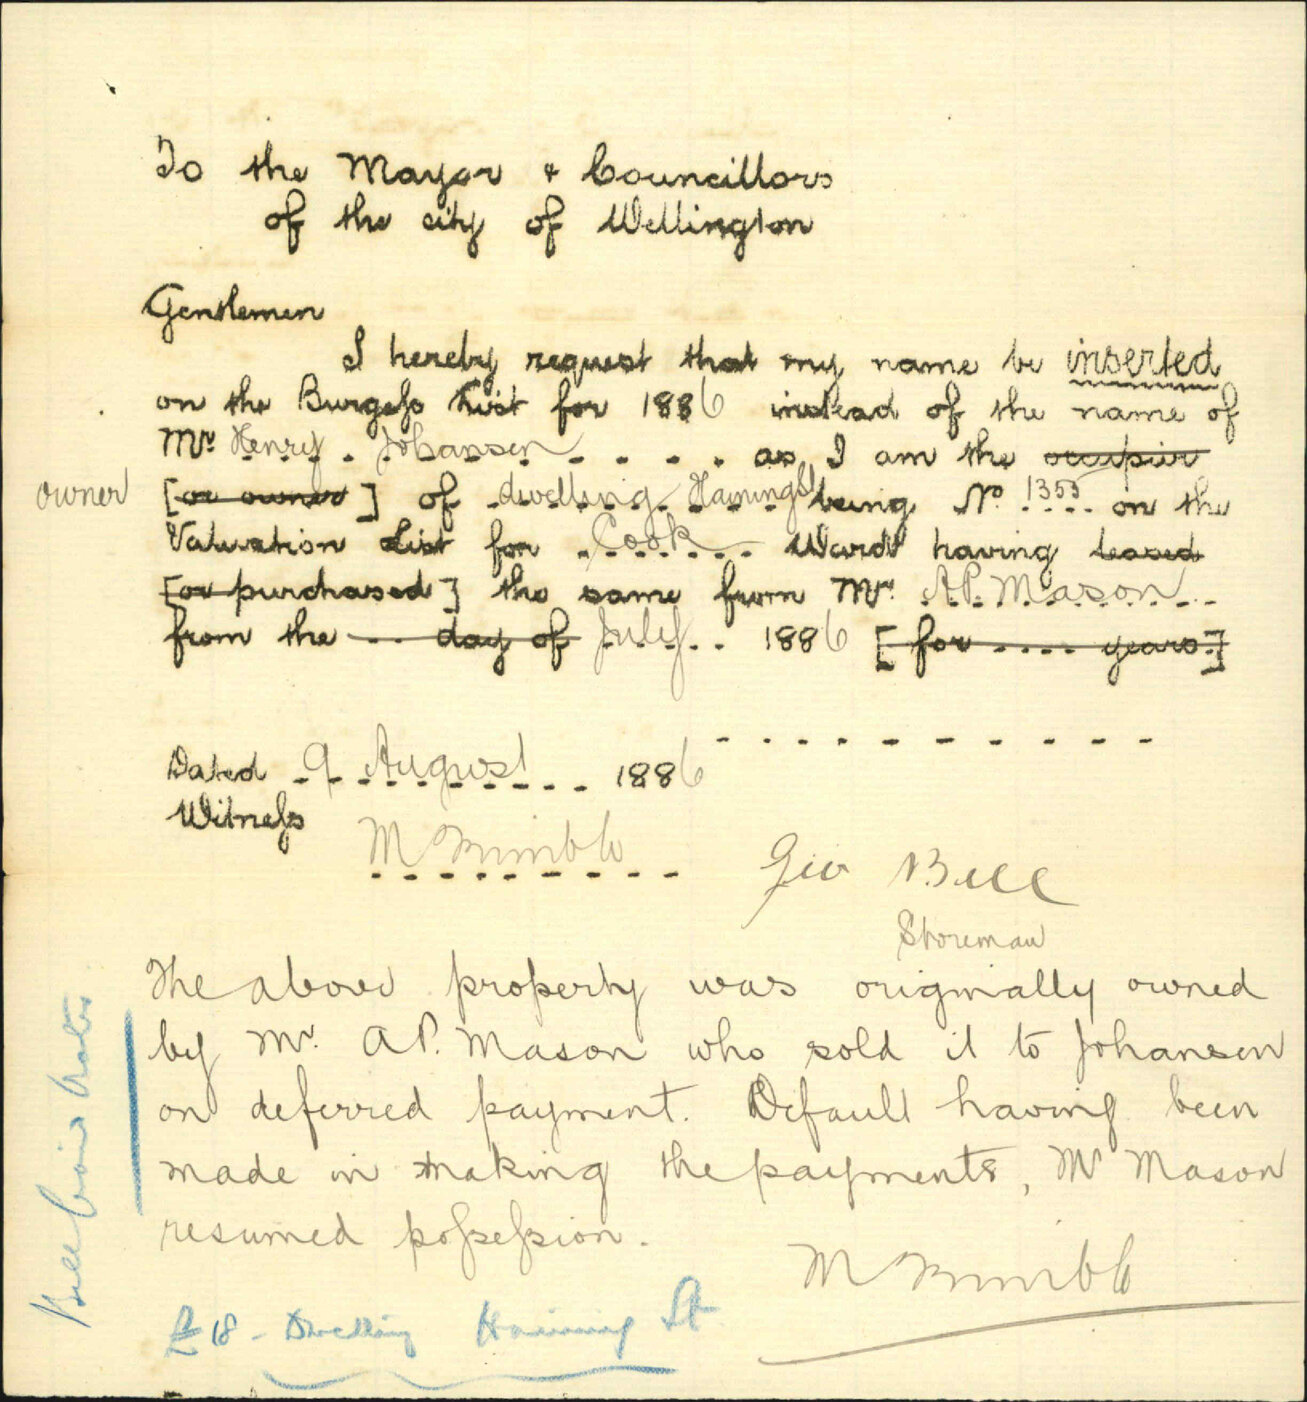 To the Mayor & Councillors
of the city of Wellington
Gentlemen
I hereby request that my name be inserted
on the Burgess List for 1886 instead of the name of
Mr Henry Johansen as I am the occupier
owner [or owner] of dwelling Haining St being No. 1355 on the
Valuation List for Cook Ward having leased
[or purchased] the same from Mr. A.P. Mason
from the .. day of July .. 1886 [for .... years.]
Dated 9 August 1886
Witness
M Trimble
Geo Bell
Storeman
The above property was originally owned
by Mr. A P. Mason who sold it to Johansen
on deferred payment. Default having been
made in making the payments, Mr Mason
resumed possession.
M Trimble
Bell rates
£18 - Dwelling Haining St